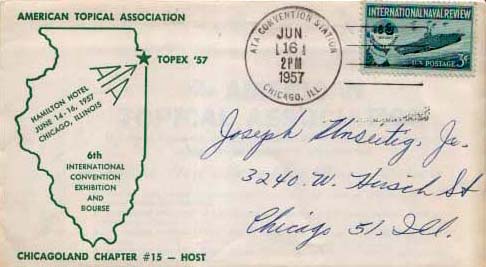 AMERICAN TOPICAL ASSOCIATION
TOPEX '57
HAMILTON HOTEL
JUNE 14-16, 1957
CHICAGO, ILLINOIS
6th
INTERNATIONAL
CONVENTION
EXHIBITION
AND
BOURSE
CHICAGOLAND CHAPTER #15 — HOST
ATA CONVENTION STATION
JUN
16
2 PM
1957
CHICAGO, ILL.
INTERNATIONAL NAVAL REVIEW
U.S. POSTAGE 3¢
Joseph Jr.
3240 W. Hirsch St
Chicago 51, Ill.